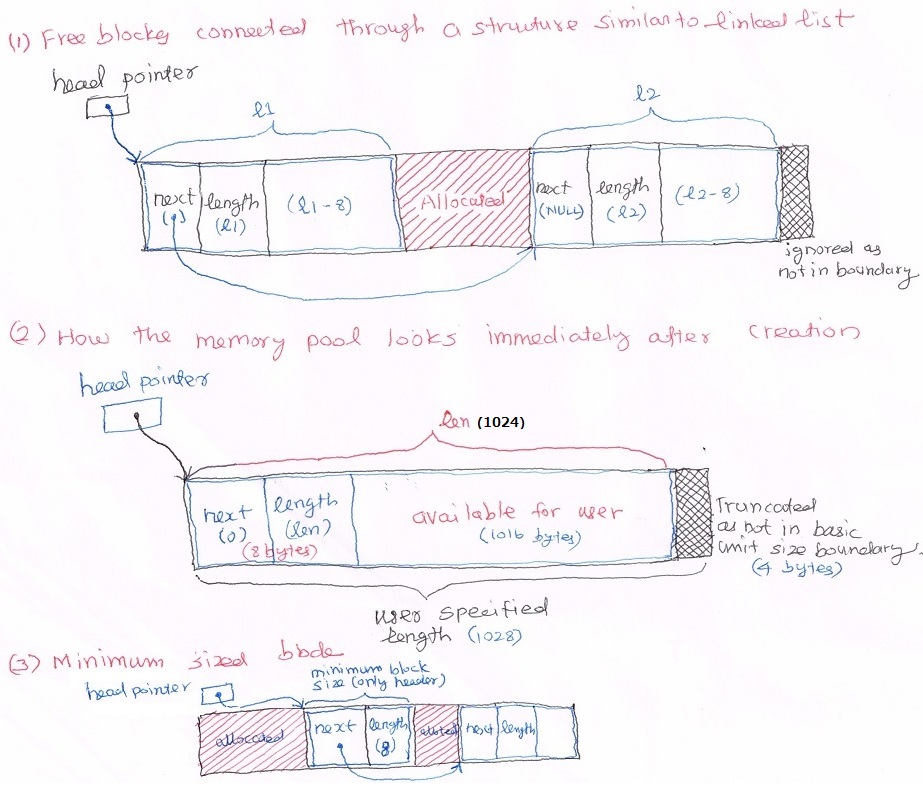 (1) Free blocks connected through a struture similar to linked list
head pointer
l1
l2
next
(•)
length
(l1)
(l1-8)
Allocated
next
(NULL)
length
(l2)
(l2-8)
ignored as
not in boundary
(2) How the memory pool looks immediately after creation
head pointer
len (1024)
next
(0)
length
(len)
(8 bytes)
available for user
(1016 bytes)
Truncated
as not in basic
unit size boundary.
(4 bytes)
user specified
length (1028)
(3) Minimum sized block
head pointer
minimum block
size (only header)
allocated
next
length
(8)
alloted
next
length